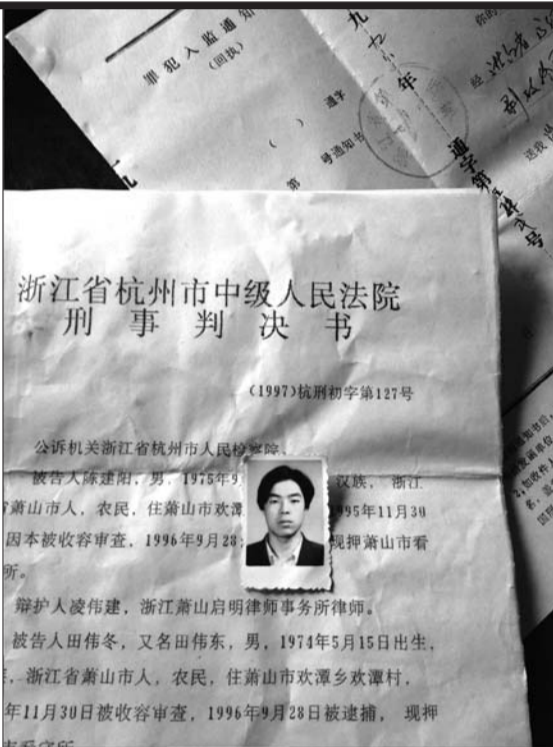 罪犯入监通知
(回执)
( ) 通字
第 号通知书
九
年
通字第
号
你的
经
送我
浙江省杭州市中级人民法院
刑事判决书
(1997)杭刑初字第127号
公诉机关浙江省杭州市人民检察院。
被告人陈建阳，男，1975年9 汉族， 浙江
省萧山市人，农民，住萧山市欢潭 995年11月30
因本被收容审查，1996年9月28 现押萧山市看
所。
辩护人凌伟建，浙江萧山启明律师事务所律师。
被告人田伟冬，又名田伟东，男，1974年5月15日出生，
，浙江省萧山市人，农民，住萧山市欢潭乡欢潭村，
年11月30日被收容审查，1996年9月28日被逮捕， 现押
市看守所